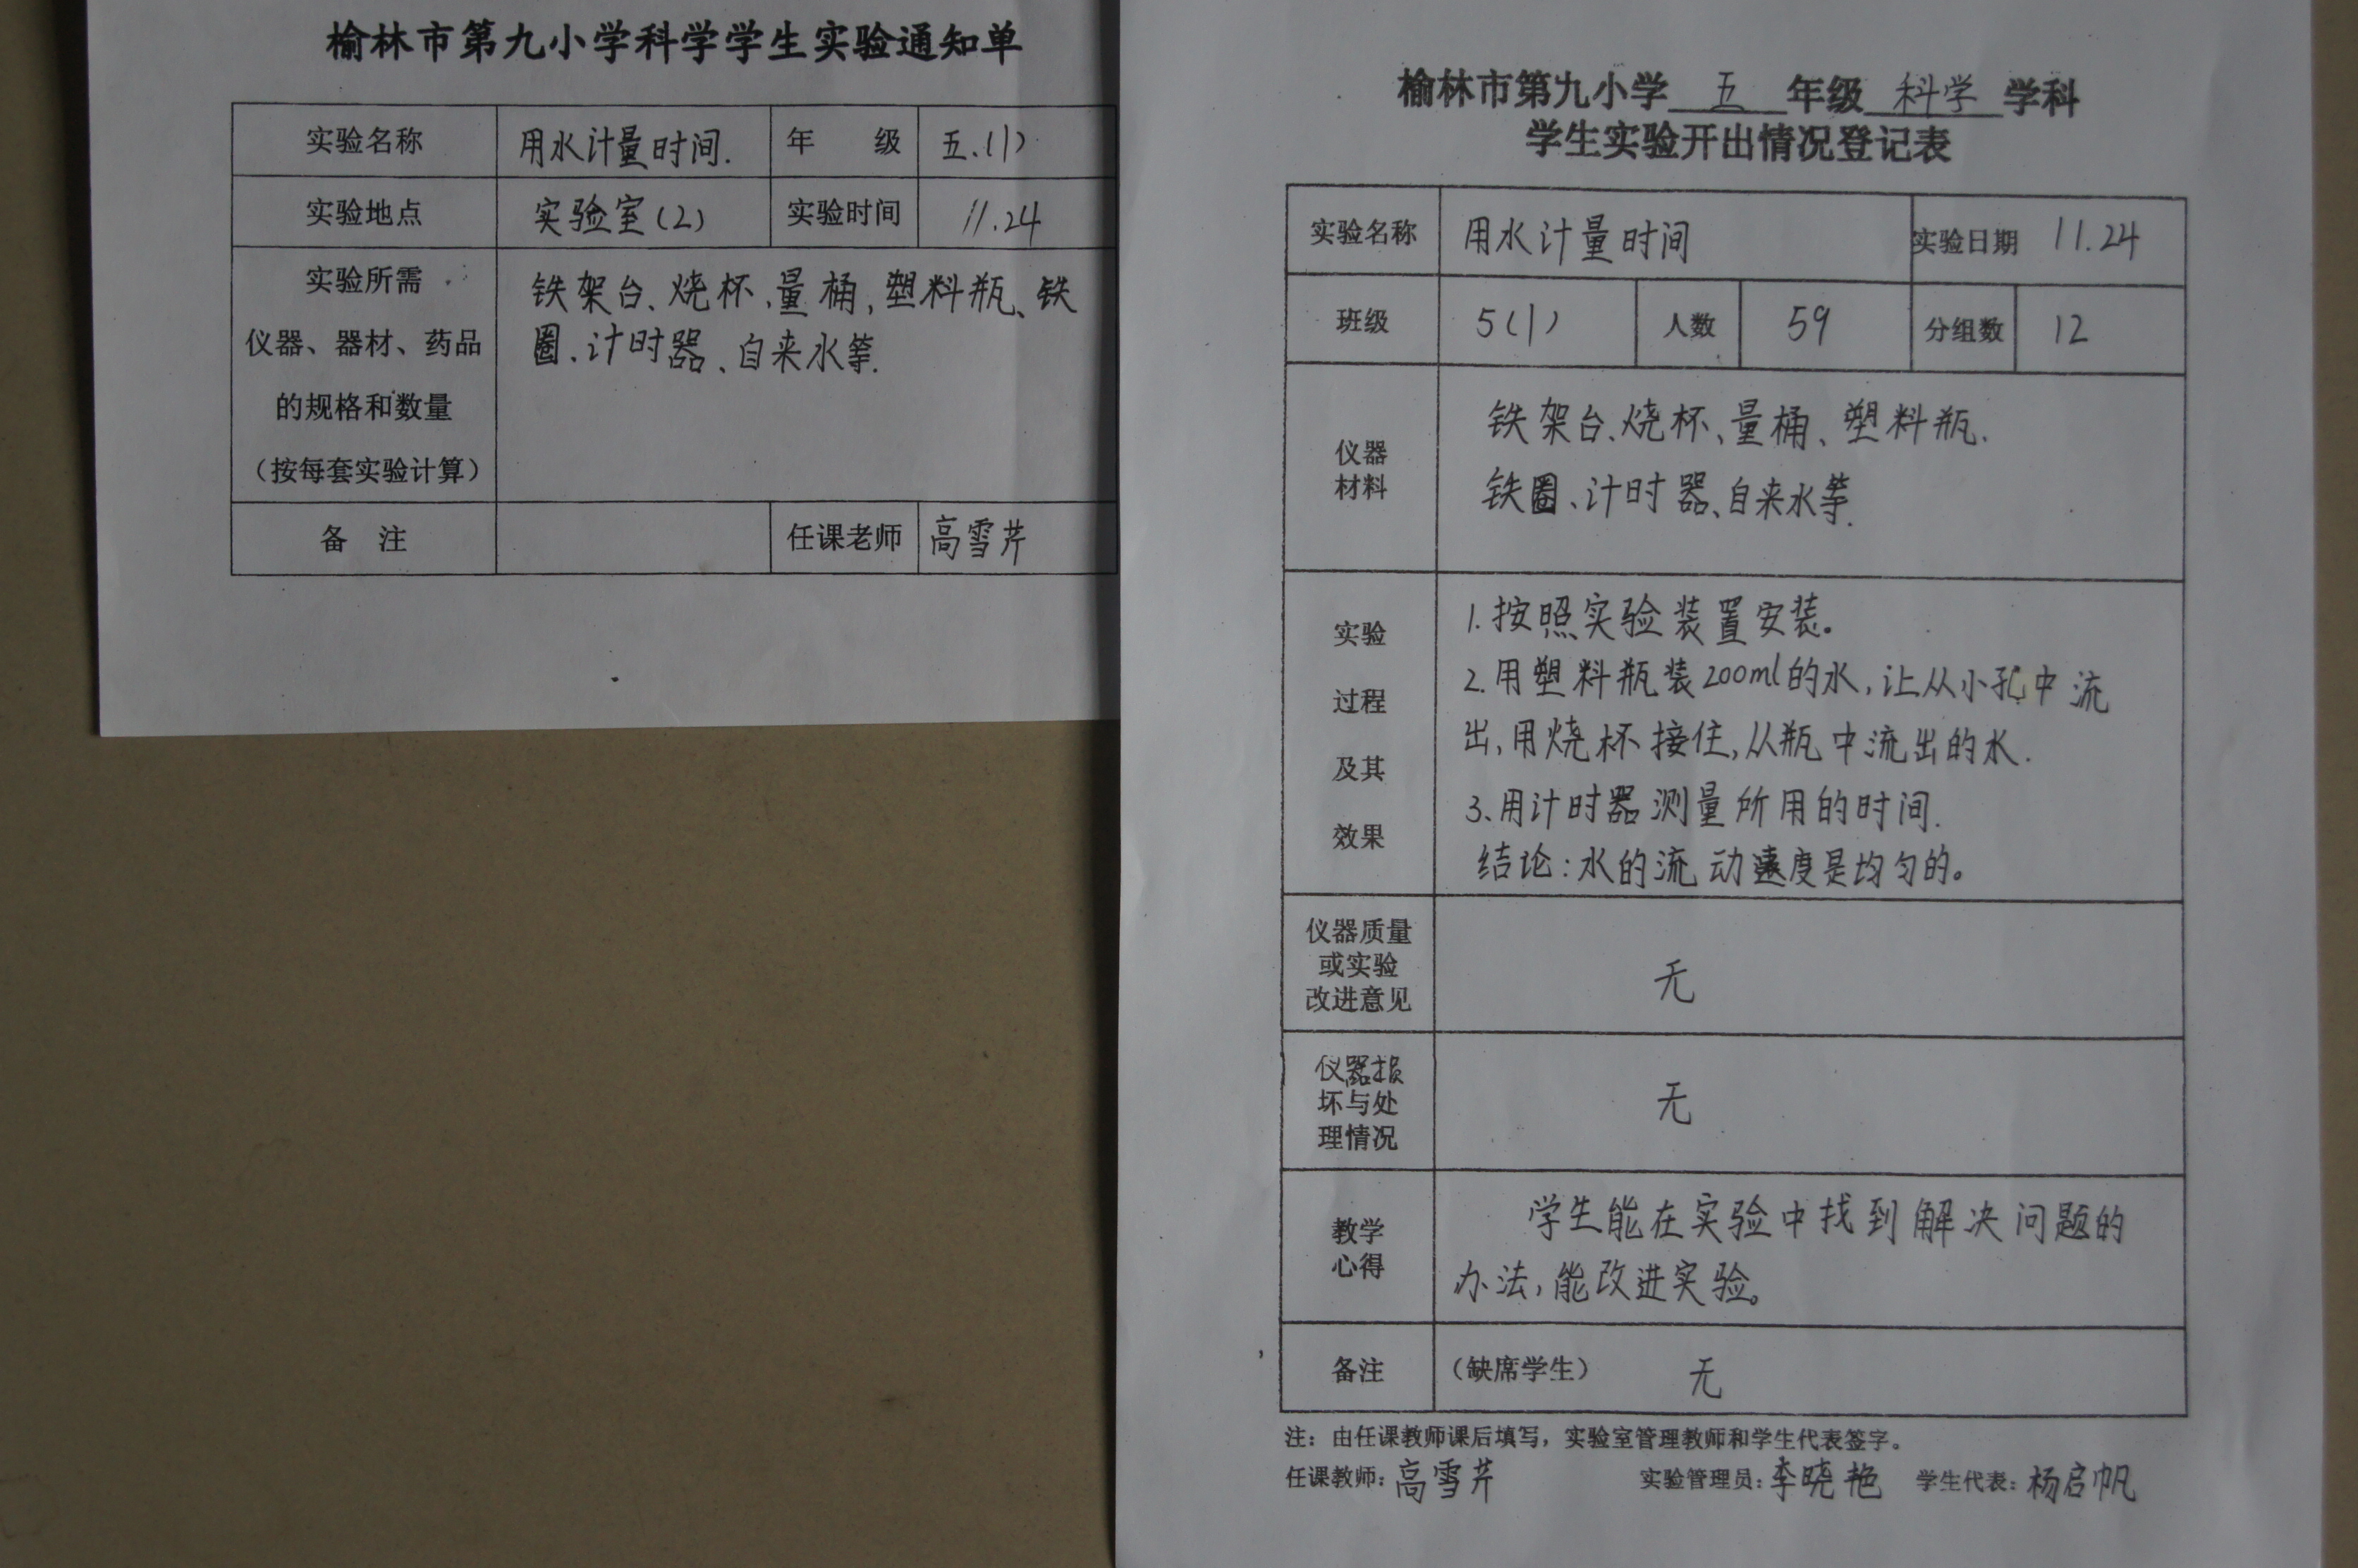 榆林市第九小学科学学生实验通知单
实验名称 用水计量时间. 年 级 五.(1)
实验地点 实验室(2) 实验时间 11.24
实验所需
仪器、器材、药品
的规格和数量
(按每套实验计算)
铁架台、烧杯、量桶,塑料瓶、铁
圈、计时器、自来水等.
备 注 任课老师 高雪芹
榆林市第九小学 五 年级 科学 学科
学生实验开出情况登记表
实验名称 用水计量时间 实验日期 11.24
班级 5(1) 人数 59 分组数 12
仪器
材料
铁架台、烧杯、量桶、塑料瓶.
铁圈、计时器、自来水等.
实验
过程
及其
效果
1.按照实验装置安装。
2.用塑料瓶装200ml的水,让从小孔中流
出,用烧杯接住,从瓶中流出的水.
3、用计时器测量所用的时间.
结论:水的流动速度是均匀的。
仪器质量
或实验
改进意见
无
仪器损
坏与处
理情况
无
教学
心得
学生能在实验中找到解决问题的
办法,能改进实验。
备注 (缺席学生) 无
注:由任课教师课后填写,实验室管理教师和学生代表签字。
任课教师:高雪芹 实验管理员:李晓艳 学生代表:杨启帆